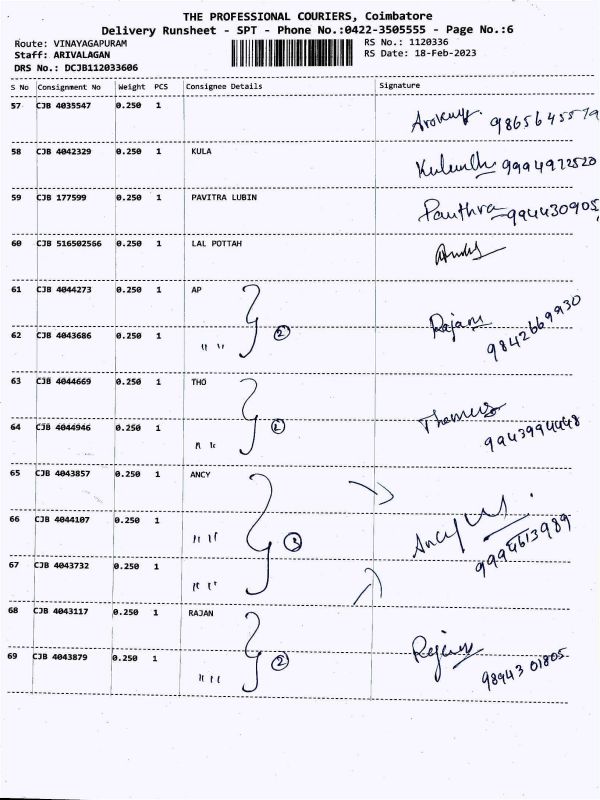 THE PROFESSIONAL COURIERS, Coimbatore
Delivery Runsheet - SPT - Phone No.:0422-3505555 - Page No.:6
Route: VINAYAGAPURAM RS No.: 1120336
Staff: ARIVALAGAN RS Date: 18-Feb-2023
DRS No.: DCJB112033606
S No Consignment No Weight PCS Consignee Details Signature
57 CJB 4035547 0.250 1
58 CJB 4042329 0.250 1 KULA 9994972520
59 CJB 177599 0.250 1 PAVITRA LUBIN 994430905
60 CJB 516502566 0.250 1 LAL POTTAH
61 CJB 4044273 0.250 1 AP Rajan
62 CJB 4043686 0.250 1 " " 2 9842669930
63 CJB 4044669 0.250 1 THO
64 CJB 4044946 0.250 1 " " 9943994448
65 CJB 4043857 0.250 1 ANCY
66 CJB 4044107 0.250 1 " " 3 Ancy
67 CJB 4043732 0.250 1 " " 9994613989
68 CJB 4043117 0.250 1 RAJAN
69 CJB 4043879 0.250 1 " " 2 98943 01805